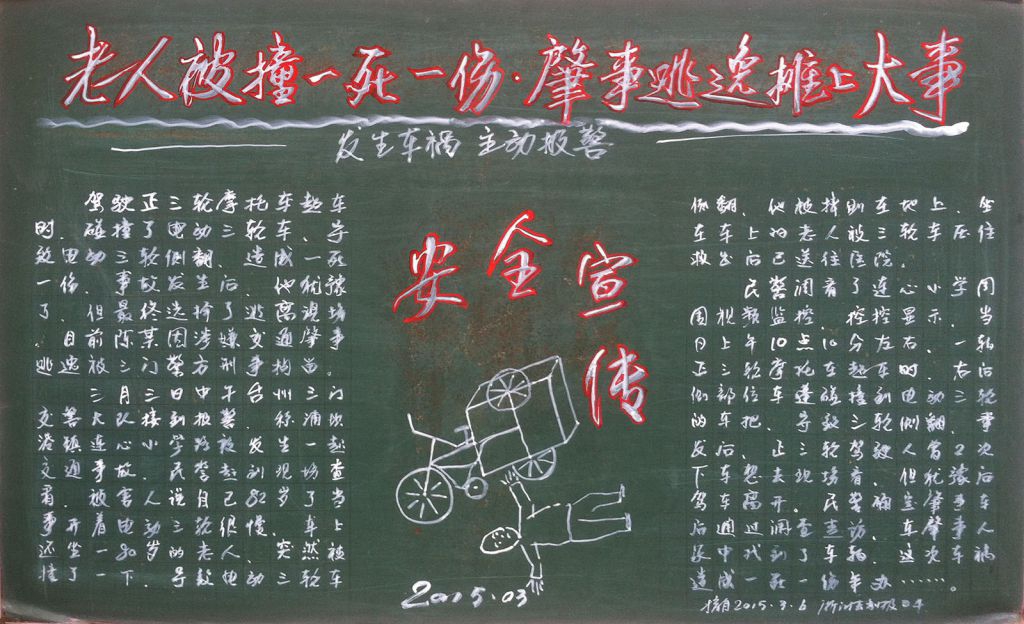 老人被撞一死一伤·肇事逃逸摊上大事
发生车祸 主动报警
驾驶正三轮摩托车超车
时、碰撞了电动三轮车、导
致电动三轮侧翻、造成一死
一伤、事故发生后、他犹豫
了、但最终选择了逃离现场
、目前陈某因涉嫌交通肇事
逃逸被三门警方刑事拘留。
三月三日中午台州三门
交警大队接到报警、称浦坝
港镇连心小学路段发生一起
交通事故、民警赶到现场查
看、被害人说自己82岁了当
事开着电动三轮很慢、车上
还坐一80岁的老人、突然被
撞了一下、导致电动三轮车
侧翻、他被摔到在地上、坐
在车上的老人被三轮车压住
救出后已送往医院。
民警调看了连心小学周
围视频监控、控控显示、当
日上午10点10分左右、一轮
正三轮摩托车超车时、右后
侧部位车蓬碰撞到电动三轮
的车把、导致三轮侧翻、事
发后、正三轮驾驶人曾2次
下车想去现场看、但犹豫后
驾车离开、民警确定肇事车
后通过调查走访、车肇事人
家中找到了车辆、这次车祸
造成一死一伤
安全宣传
2015.03
摘自2015.3.6